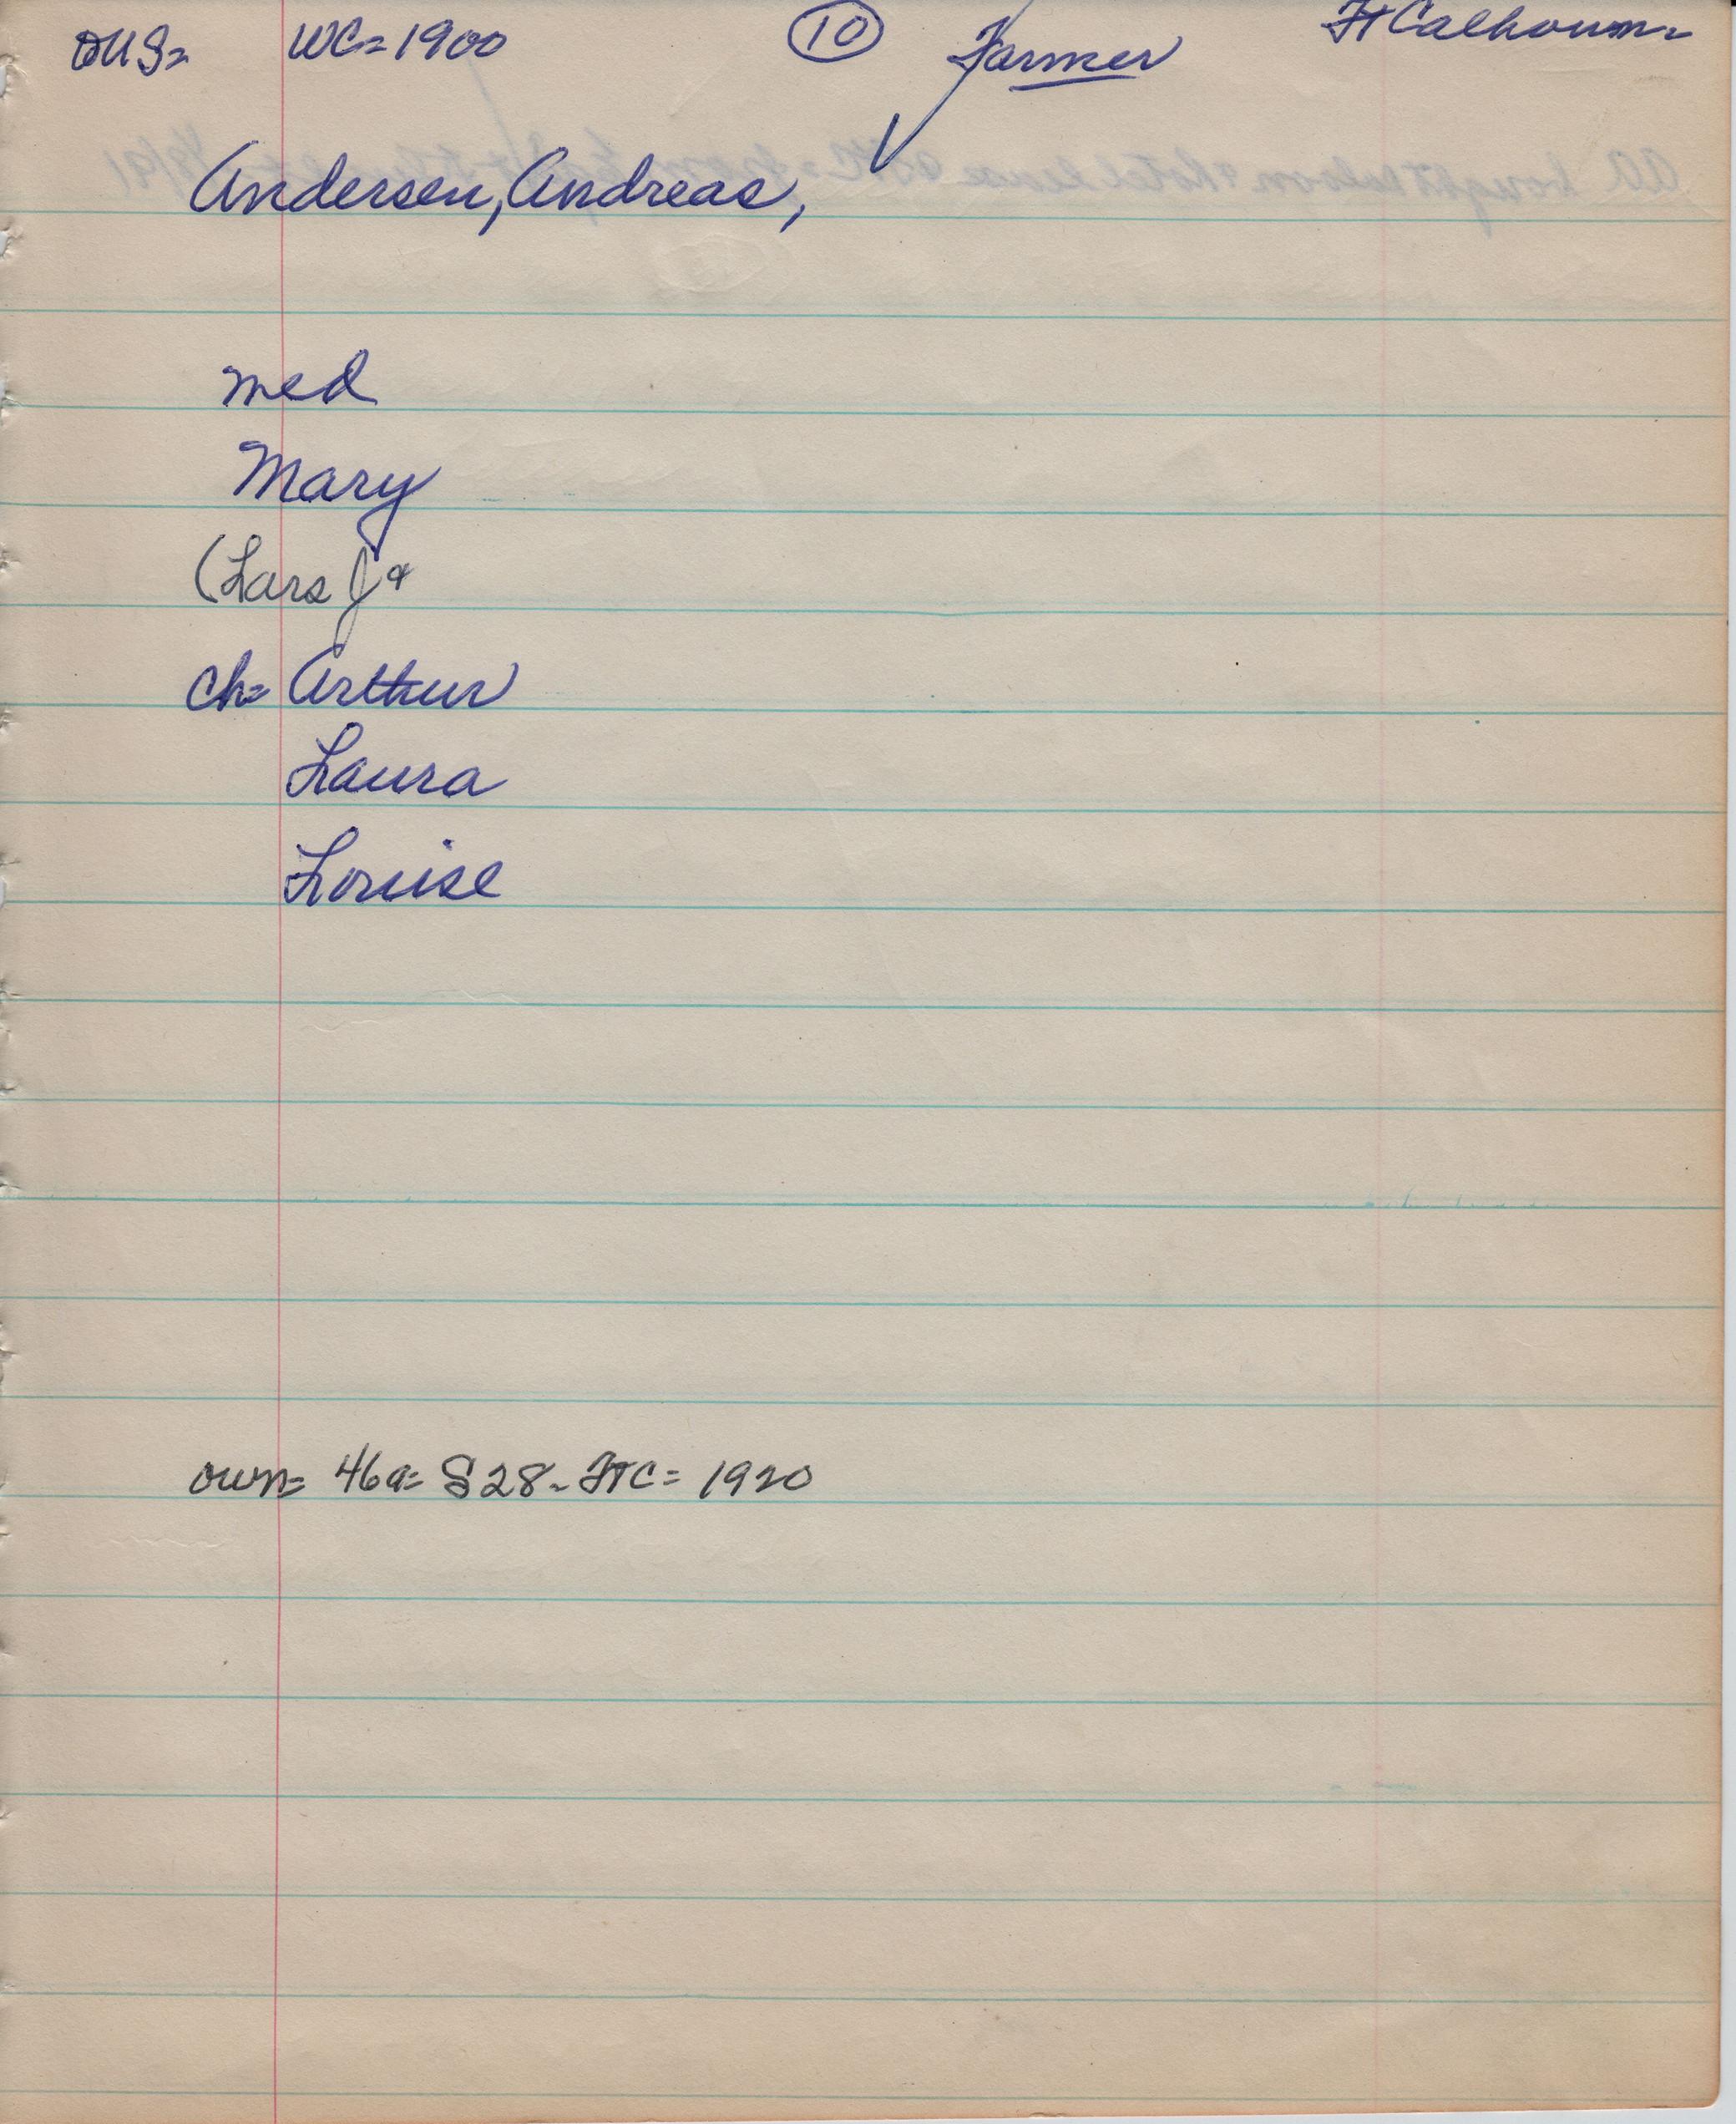 DUS= WC=1900 (10) Farmer Ft Calhoun-
Andersen, Andreas,
med
Mary
(Lars J &
ch= Arthur
Laura
Louise
own= 46a= S28- FTC= 1920